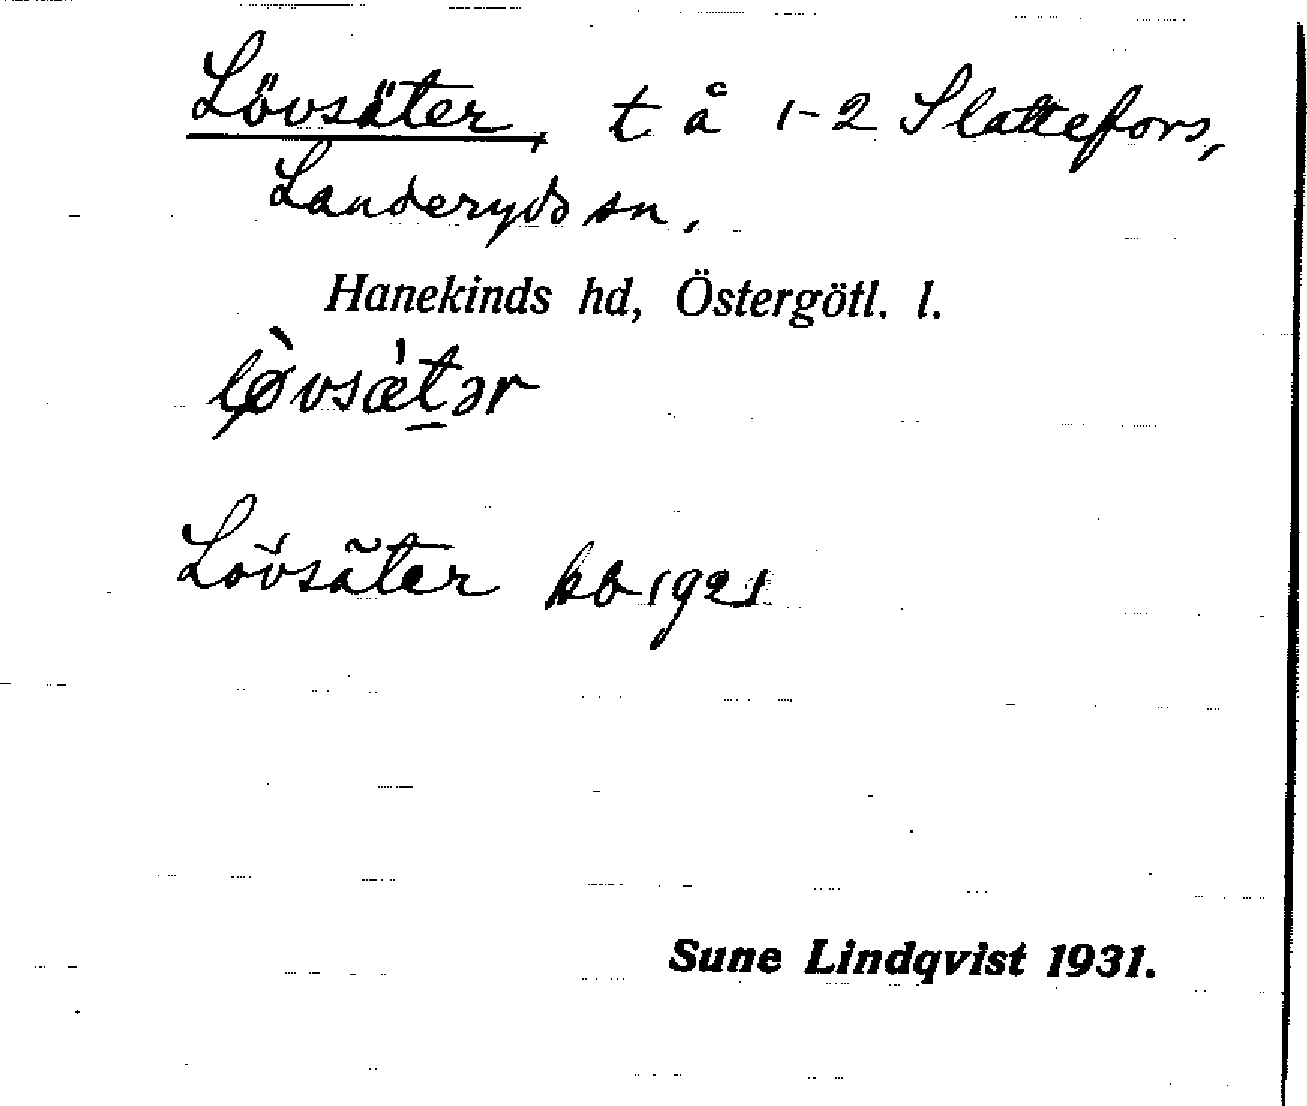 Lövsäter, t å 1-2 Slattefors,
Landeryds sn,
Hanekinds hd, Östergötl. l.
lø̀vsæ̍tər
Lövsäter kb 1921
Sune Lindqvist 1931.